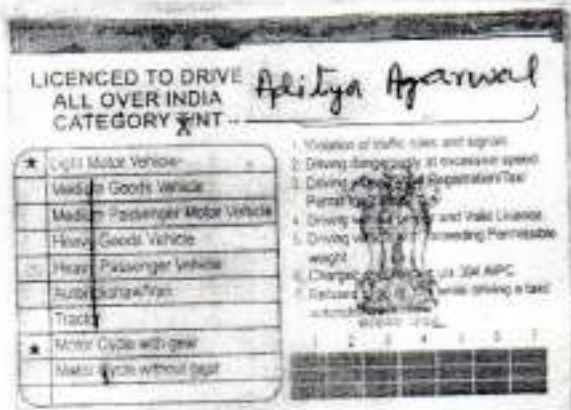 LICENCED TO DRIVE
ALL OVER INDIA
CATEGORY T/NT
Aditya Agarwal
★ Light Motor Vehicle
Medium Goods Vehicle
Medium Passenger Motor Vehicle
Heavy Goods Vehicle
Heavy Passenger Vehicle
Autorickshaw/Van
Tractor
★ Motor Cycle with gear
Motor Cycle without gear
1. Violation of traffic rules and signals
2. Driving dangerously at excessive speed
3. Driving Registration/Tax
Permit
4. Driving and Valid Licence
5. Driving exceeding Permissible
weight
6. Charged 304 A IPC
7. Refused while driving a taxi
1 2 3 4 5 6 7